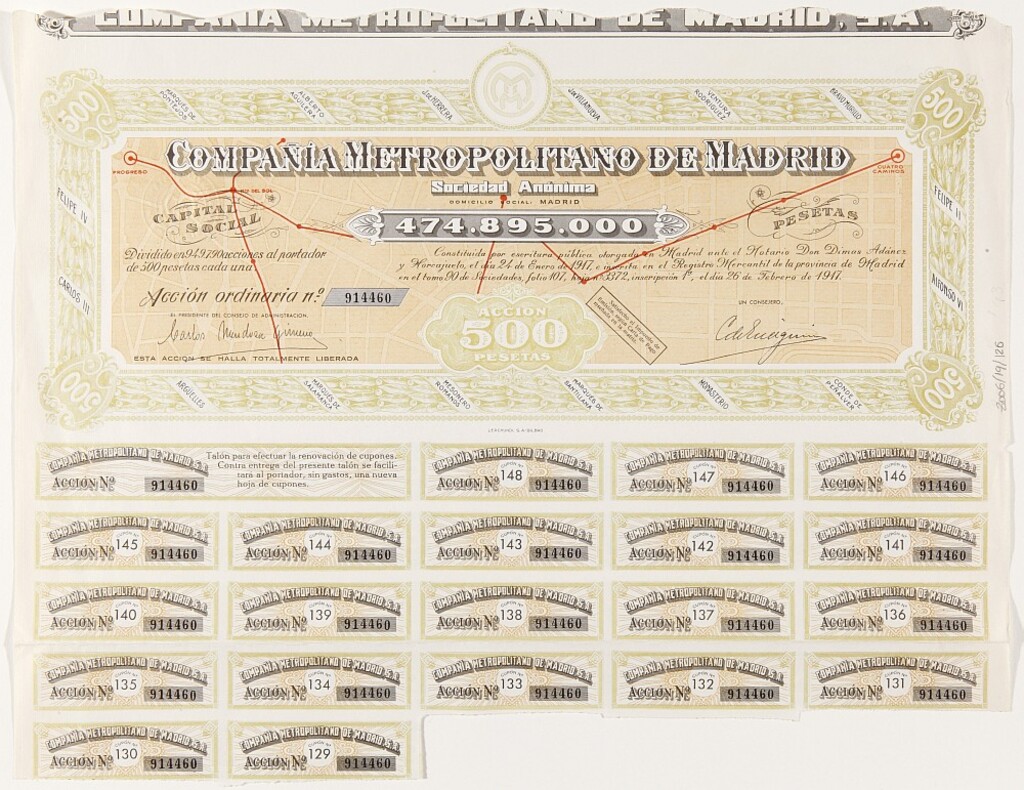 COMPAÑIA METROPOLITANO DE MADRID, S.A.
MARQUÉS DE PONTEJOS
ALBERTO AGUILERA
J. DE HERRERA
J. de VILLANUEVA
VENTURA RODRIGUEZ
BRAVO MURILLO
500
500
COMPAÑIA METROPOLITANO DE MADRID
PROGRESO
CUATRO CAMINOS
Sociedad Anónima
DOMICILIO SOCIAL: MADRID
FELIPE IV
FELIPE II
CAPITAL SOCIAL
474.895.000
PESETAS
Dividido en 949.790 acciones al portador
de 500 pesetas cada una
Constituida por escritura pública otorgada en Madrid ante el Notario Don Dimas Adánez
y Horcajuelo, el día 24 de Enero de 1917, e inscrita en el Registro Mercantil de la provincia de Madrid
en el tomo 90 de Sociedades, folio 107, hoja 3372, inscripción 1ª, el día 26 de Febrero de 1917.
CARLOS III
ALFONSO VI
Acción ordinaria n.º 914460
EL PRESIDENTE DEL CONSEJO DE ADMINISTRACIÓN,
UN CONSEJERO,
ACCION
500
PESETAS
ESTA ACCION SE HALLA TOTALMENTE LIBERADA
500
500
ARGÜELLES
MARQUÉS DE SALAMANCA
MESONERO ROMANOS
MARQUÉS DE SANTILLANA
MONASTERIO
CONDE DE PEÑALVER
2006/19/126
COMPAÑIA METROPOLITANO DE MADRID, S.A.
ACCIÓN Nº 914460
Talón para efectuar la renovación de cupones.
Contra entrega del presente talón se facili-
tará al portador, sin gastos, una nueva
hoja de cupones.
COMPAÑIA METROPOLITANO DE MADRID, S.A.
CUPÓN Nº 148
ACCIÓN Nº 914460
COMPAÑIA METROPOLITANO DE MADRID, S.A.
CUPÓN Nº 147
ACCIÓN Nº 914460
COMPAÑIA METROPOLITANO DE MADRID, S.A.
CUPÓN Nº 146
ACCIÓN Nº 914460
COMPAÑIA METROPOLITANO DE MADRID, S.A.
CUPÓN Nº 145
ACCIÓN Nº 914460
COMPAÑIA METROPOLITANO DE MADRID, S.A.
CUPÓN Nº 144
ACCIÓN Nº 914460
COMPAÑIA METROPOLITANO DE MADRID, S.A.
CUPÓN Nº 143
ACCIÓN Nº 914460
COMPAÑIA METROPOLITANO DE MADRID, S.A.
CUPÓN Nº 142
ACCIÓN Nº 914460
COMPAÑIA METROPOLITANO DE MADRID, S.A.
CUPÓN Nº 141
ACCIÓN Nº 914460
COMPAÑIA METROPOLITANO DE MADRID, S.A.
CUPÓN Nº 140
ACCIÓN Nº 914460
COMPAÑIA METROPOLITANO DE MADRID, S.A.
CUPÓN Nº 139
ACCIÓN Nº 914460
COMPAÑIA METROPOLITANO DE MADRID, S.A.
CUPÓN Nº 138
ACCIÓN Nº 914460
COMPAÑIA METROPOLITANO DE MADRID, S.A.
CUPÓN Nº 137
ACCIÓN Nº 914460
COMPAÑIA METROPOLITANO DE MADRID, S.A.
CUPÓN Nº 136
ACCIÓN Nº 914460
COMPAÑIA METROPOLITANO DE MADRID, S.A.
CUPÓN Nº 135
ACCIÓN Nº 914460
COMPAÑIA METROPOLITANO DE MADRID, S.A.
CUPÓN Nº 134
ACCIÓN Nº 914460
COMPAÑIA METROPOLITANO DE MADRID, S.A.
CUPÓN Nº 133
ACCIÓN Nº 914460
COMPAÑIA METROPOLITANO DE MADRID, S.A.
CUPÓN Nº 132
ACCIÓN Nº 914460
COMPAÑIA METROPOLITANO DE MADRID, S.A.
CUPÓN Nº 131
ACCIÓN Nº 914460
COMPAÑIA METROPOLITANO DE MADRID, S.A.
CUPÓN Nº 130
ACCIÓN Nº 914460
COMPAÑIA METROPOLITANO DE MADRID, S.A.
CUPÓN Nº 129
ACCIÓN Nº 914460